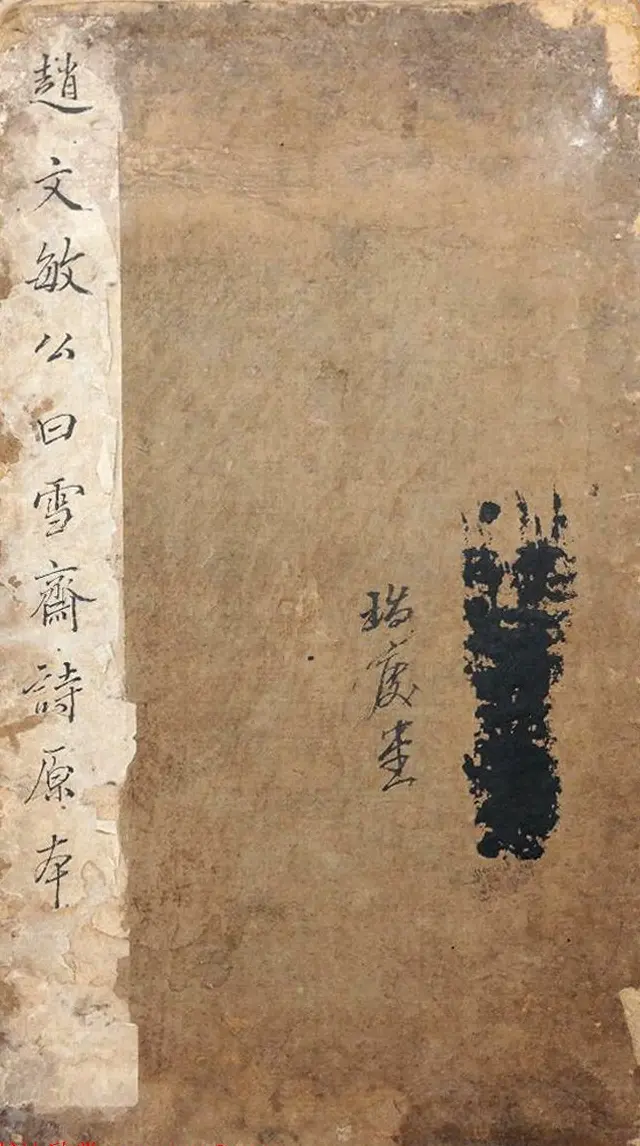 趙文敏公曰雪齋詩原本
瑞慶堂